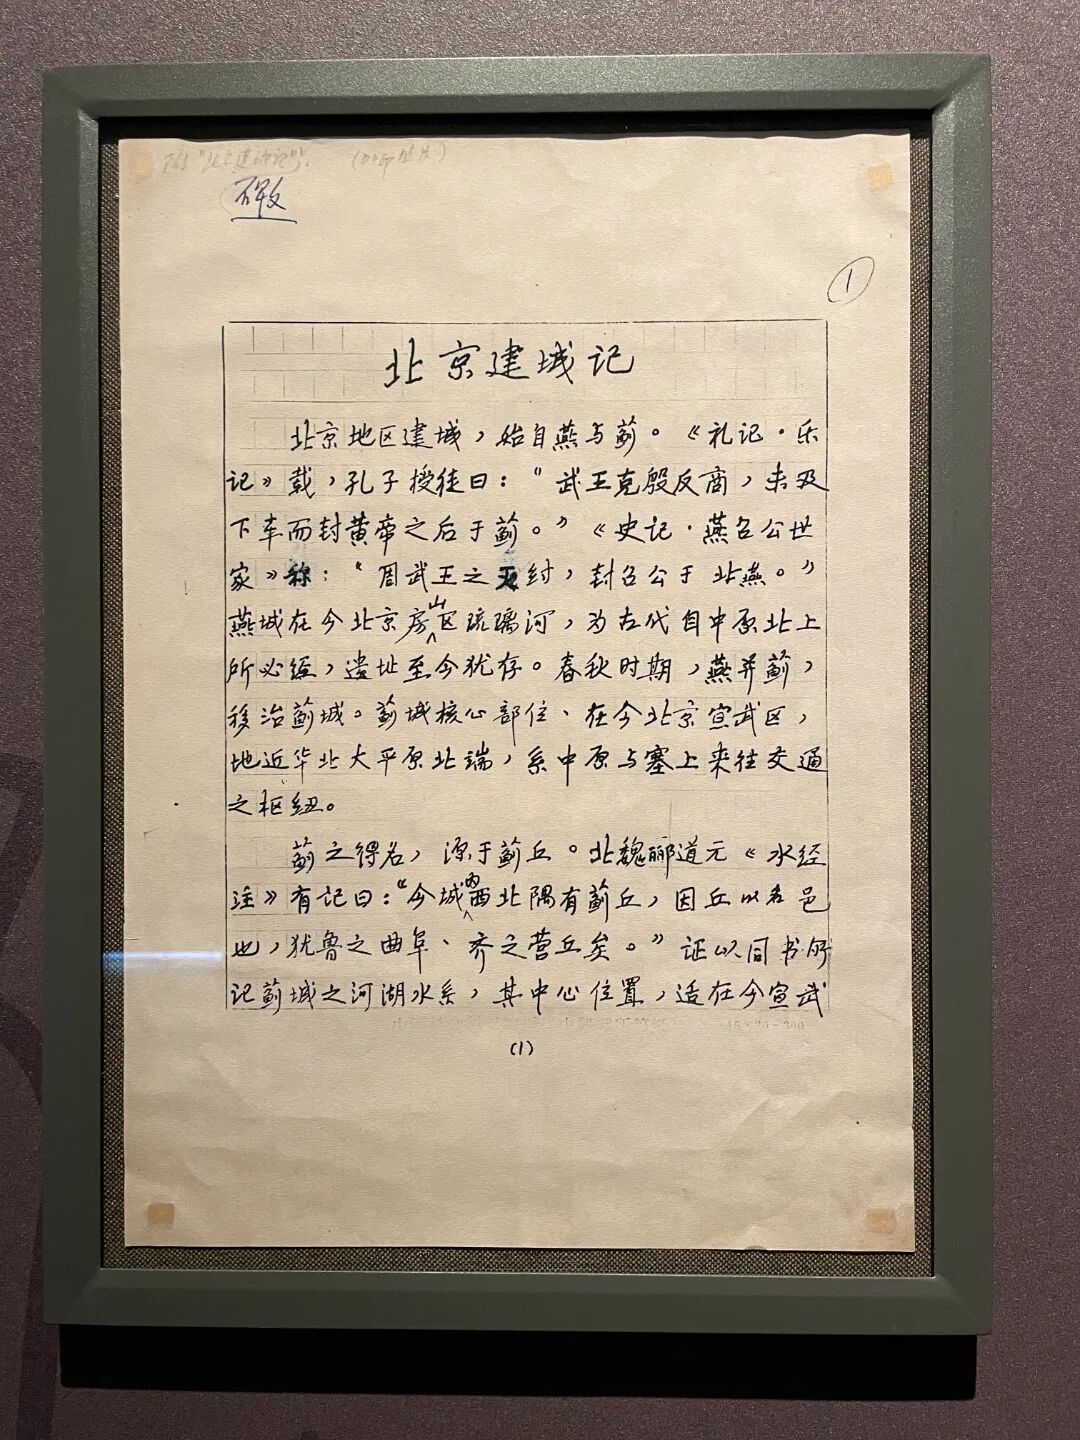 ①
北京建城记
北京地区建城，始自燕与蓟。《礼记·乐
记》载，孔子授徒曰：“武王克殷反商，未及
下车而封黄帝之后于蓟。”《史记·燕召公世
家》称：“周武王之灭纣，封召公于北燕。”
燕城在今北京房山区琉璃河，为古代自中原北上
所必经，遗址至今犹存。春秋时期，燕并蓟，
移治蓟城。蓟城核心部位、在今北京宣武区，
地近华北大平原北端，系中原与塞上来往交通
之枢纽。
蓟之得名，源于蓟丘。北魏郦道元《水经
注》有记曰：“今城内西北隅有蓟丘，因丘以名邑
也，犹鲁之曲阜、齐之营丘矣。”证以同书所
记蓟城之河湖水系，其中心位置，适在今宣武
(1)